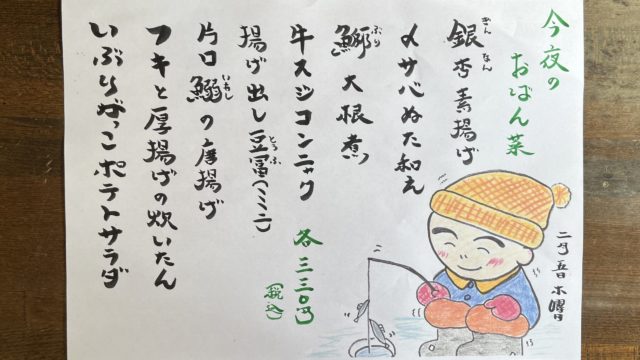 今夜の
おばん菜
銀杏素揚げ
ぎんなん
〆サバぬた和え
鰤大根煮
ぶり
牛スジコンニャク
揚げ出し豆冨(ミニ)
とうふ
片口鰯の唐揚げ
いわし
フキと厚揚げの炊いたん
いぶりがっこポテトサラダ
各三三〇円
(税込)
二月五日木曜日